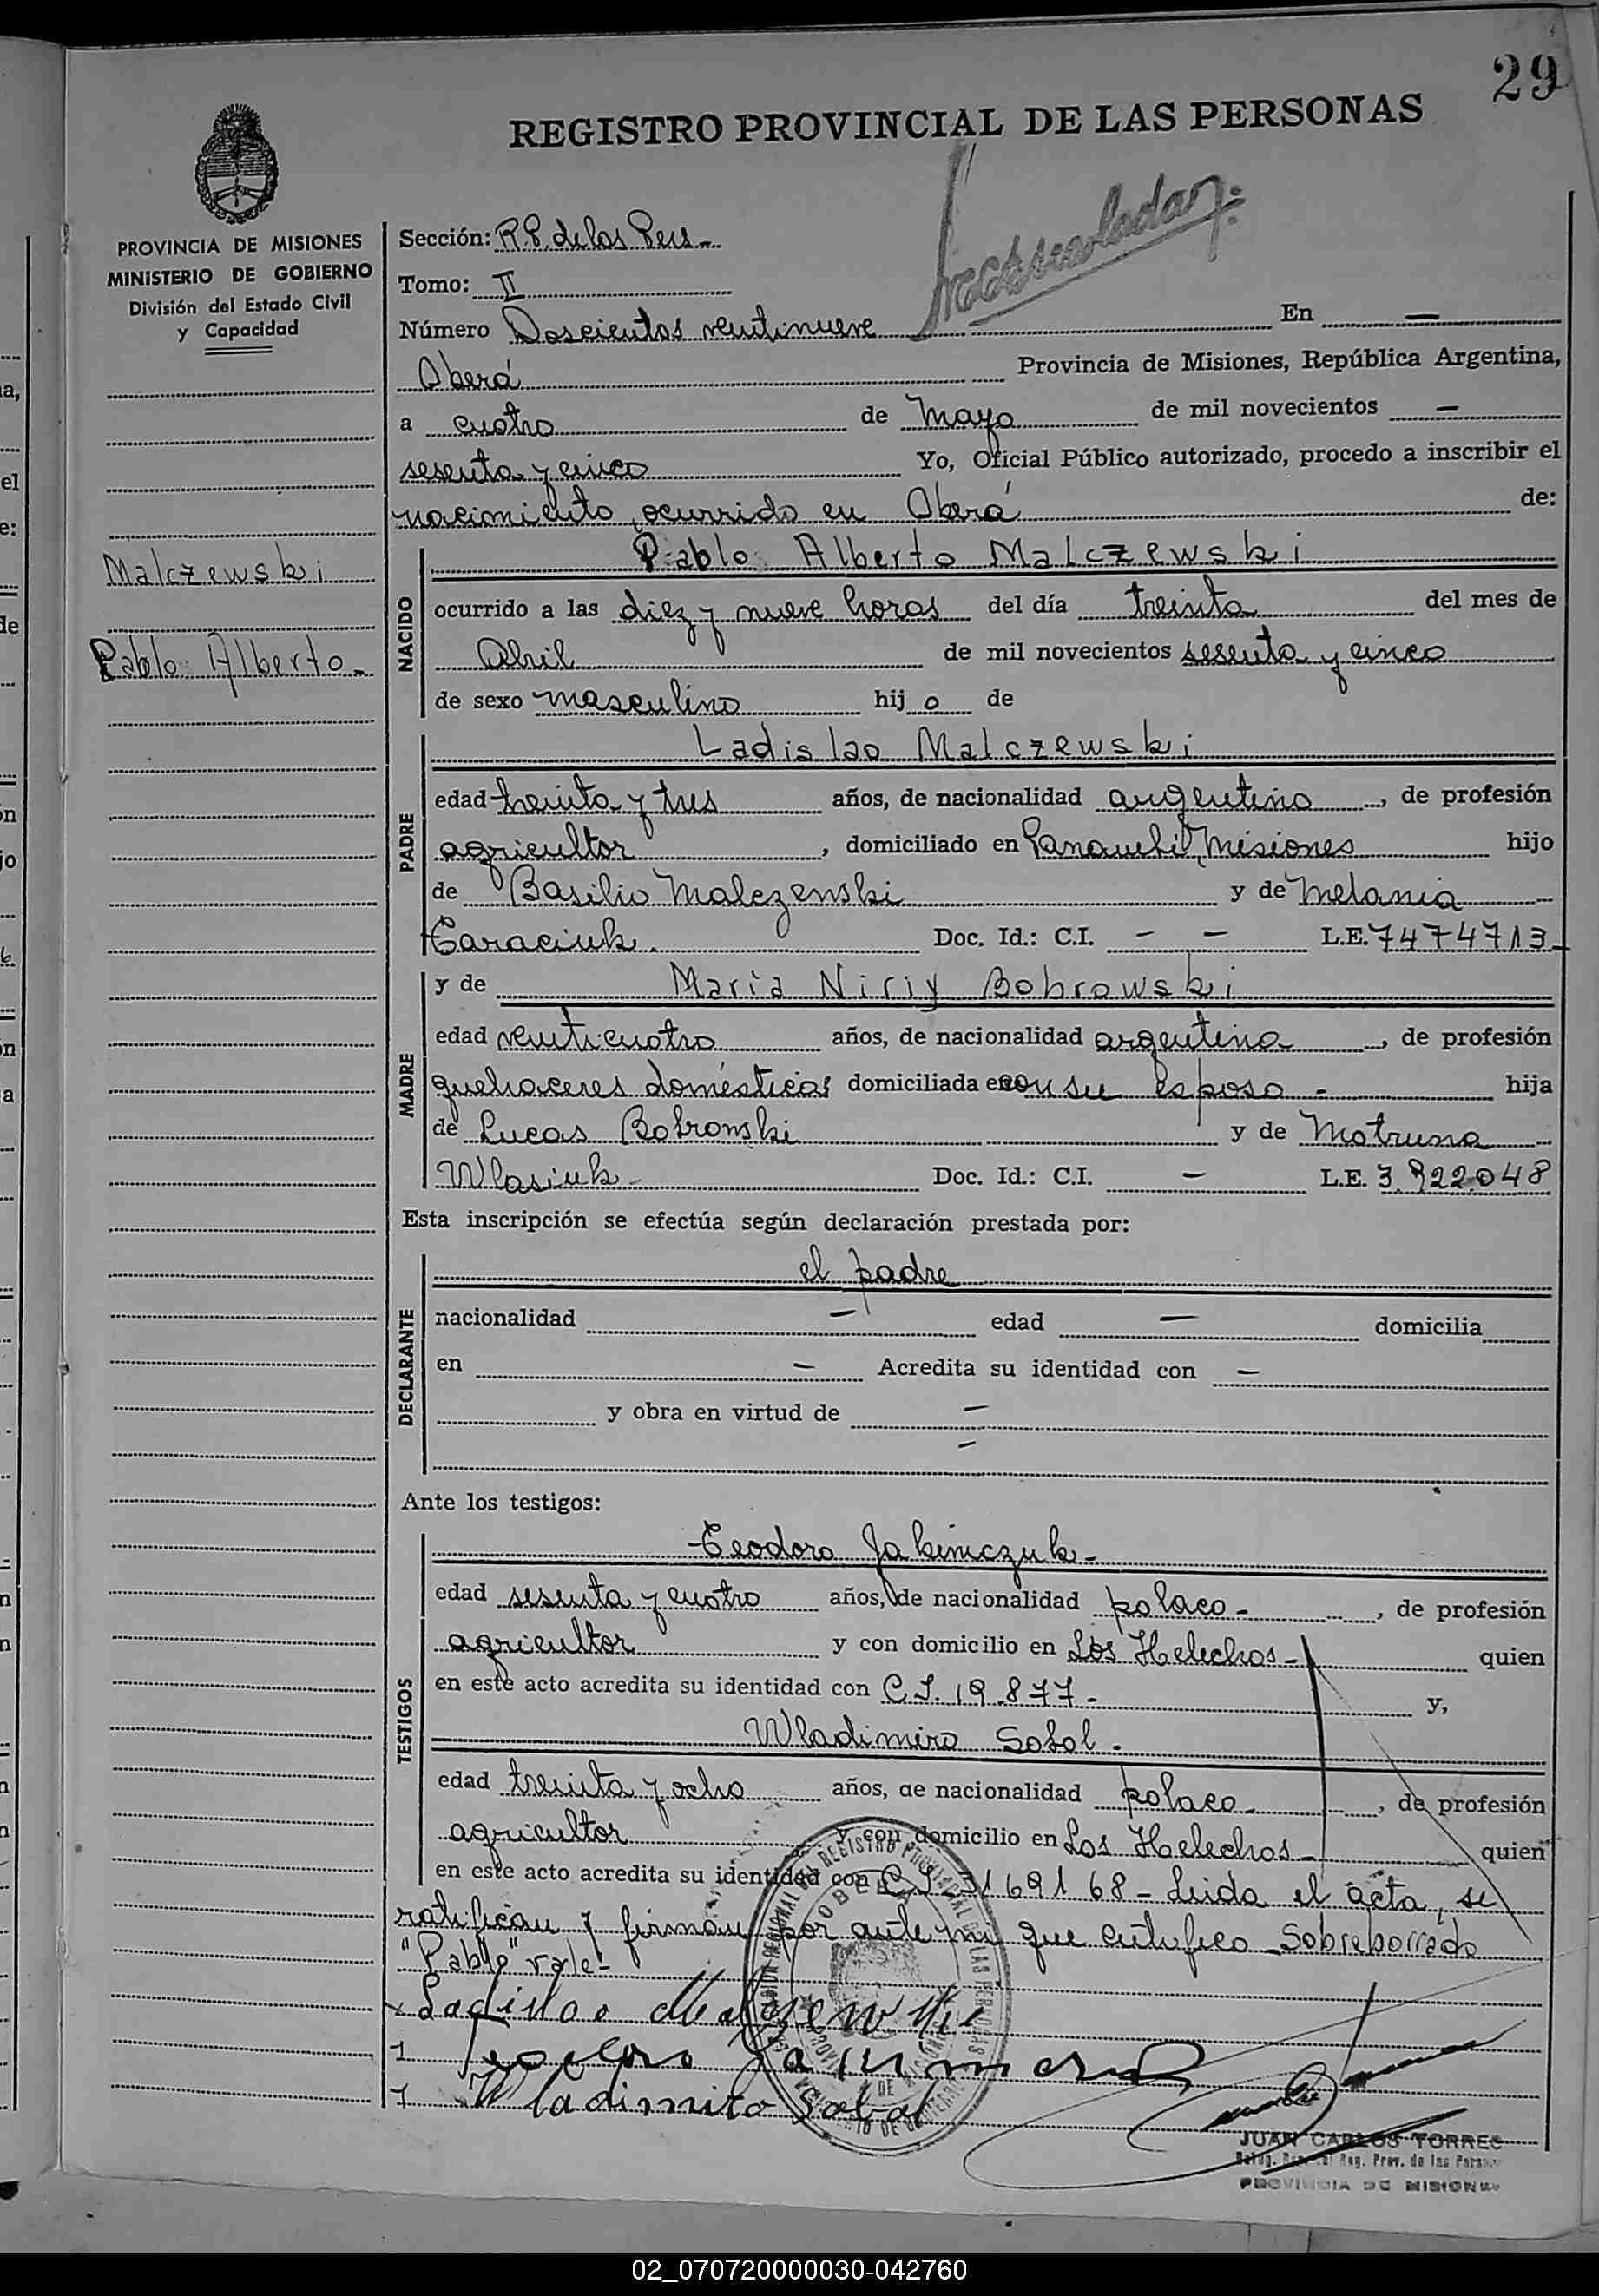 29
REGISTRO PROVINCIAL DE LAS PERSONAS
PROVINCIA DE MISIONES
MINISTERIO DE GOBIERNO
División del Estado Civil
y Capacidad
Malczewski
Pablo Alberto
Sección: R.P. de las Pers
Tomo: II
Número Doscientos veintinueve En
Oberá Provincia de Misiones, República Argentina,
a cuatro de Mayo de mil novecientos
sesenta y cinco Yo, Oficial Público autorizado, procedo a inscribir el
nacimiento ocurrido en Oberá de:
NACIDO
Pablo Alberto Malczewski
ocurrido a las diez y nueve horas del día treinta del mes de
Abril de mil novecientos sesenta y cinco
de sexo masculino hijo de
PADRE
Ladislao Malczewski
edad treinta y tres años, de nacionalidad argentino, de profesión
agricultor, domiciliado en Panambí, Misiones hijo
de Basilio Malczewski y de Melania
Caraciuk. Doc. Id.: C.I. - - L.E. 7474713
MADRE
y de Maria Niriy Bobrowski
edad veinticuatro años, de nacionalidad argentina, de profesión
quehaceres domésticos domiciliada en con su esposo - hija
de Lucas Bobrowski y de Motruna
Wlasiuk - Doc. Id.: C.I. - L.E. 3.922.048
Esta inscripción se efectúa según declaración prestada por:
DECLARANTE
el padre
nacionalidad - edad - domicilia
en - Acredita su identidad con -
y obra en virtud de -
-
Ante los testigos:
TESTIGOS
Teodoro Jakimczuk -
edad sesenta y cuatro años, de nacionalidad polaco -, de profesión
agricultor y con domicilio en Los Helechos - quien
en este acto acredita su identidad con C.I. 19.877 - y,
Wladimiro Sobol.
edad treinta y ocho años, de nacionalidad polaco -, de profesión
agricultor y con domicilio en Los Helechos - quien
en este acto acredita su identidad con C.I. 3169168 - Leida el acta, se
ratifican y firman por ante mí que certifico - Sobreborrado
"Pablo" vale -
Ladislao Malczewski
Teodoro
Wladimiro Sobol
JUAN CARLOS TORRES
Reg. Prov. de las Person
PROVINCIA DE MISIONES
02_070720000030-042760